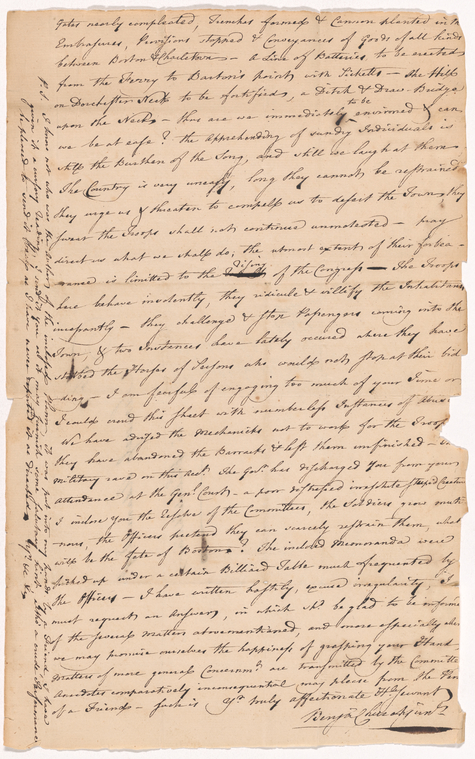 Gates nearly compleated, Trenches formed & Cannon planted in
Embrasures, Provisions stopped & Conveyances of Goods of all kinds
between Boston & Charlestown – A Line of Batteries to be erected
from the Ferry to Barton's point, with Picketts – the Hills
on Dorchester Neck to be fortified, a Ditch & Draw Bridge
upon the Neck – thus are we immediately to be environed & can
we be at ease? the Apprehending of sundry Individuals is
still the Burthen of the Song, and still we laugh at them
The Country is very uneasy, long they cannot be restrained
they urge us & threaten to compell us to desert the Town, they
swear the Troops shall not continue unmolested – pray
direct us what we shall do, the utmost extent of their forbea-
rance is limited to the Rising of the Congress – The Troops
here behave insolently, they ridicule & villify the Inhabitants
incessantly – they challenge & stop Passengers coming into the
Town, & two Instances have lately occured where they have
stabbed the Horses of Persons who would not stop at their bid
ding – I am fearfull of engaging too much of your Time or
I could croud this sheet with numberless Instances of Abuse
We have advised the Mechanicks not to work for the Troops
they have abandoned the Barracks & left them unfinished –
military rave on this head. The Govr. has discharged you from your
Attendance at the Genl. Court – a poor distressed irresolute stupid Creature
I inclose you the Resolve of the Committees, the Soldiers grow muti
-nous, the Officers pretend they can scarcely restrain them, what
will be the Fate of Boston? The inclosed Memoranda were
picked up under a certain Billiard Table much frequented by
the Officers – I have written hastily, excuse irregularity, I
must request an Answer, in which shd. be glad to be informed
of the several matters abovementioned, and more especially when
we may promise ourselves the happiness of grasping your Hand –
Matters of more general Concernmt. are transmitted by the Committee
Anecdotes comparatively inconsequential may please from the Pen
of a Friend – Such is Yr. truly affectionate Hble Servant
Benja. Church Junr.
P.S. I know not who was the Author of the inclosed